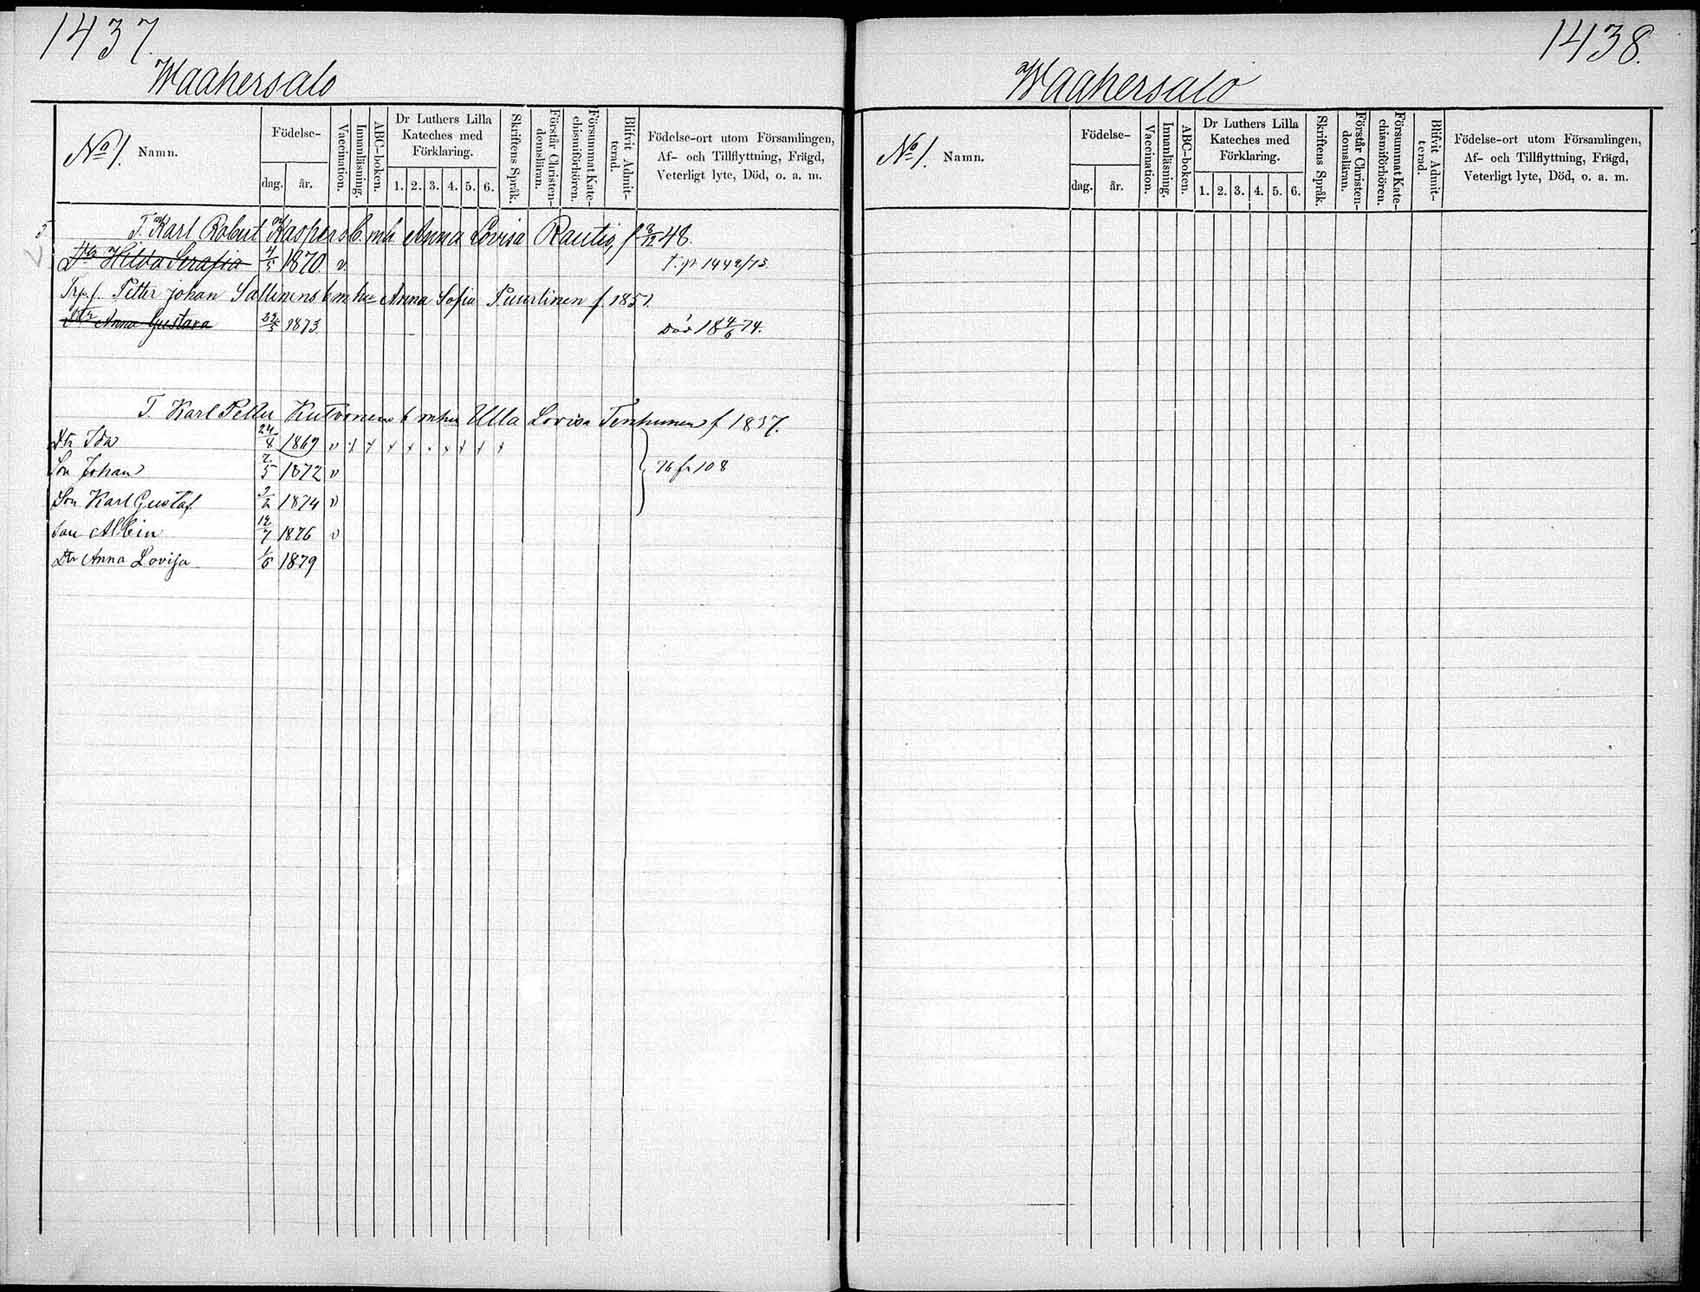 1437.
Waahersalo
No 1. Namn.
Födelse-
dag. år.
Vaccination.
Innanläsning.
ABC-boken.
Dr Luthers Lilla
Kateches med
Förklaring.
1. 2. 3. 4. 5. 6.
Skriftens Språk.
Förstår Christen-
domsläran.
Försummat Kate-
chismiförhören.
Blifvit Admit-
terad.
Födelse-ort utom Församlingen,
Af- och Tillflyttning, Frägd,
Veterligt lyte, Död, o. a. m.
T. Karl Robert Kaspers b. m h Anna Lovisa Rautio, f 8/12 48.
Dtr Hilda Serafia 4/5 1870 v t. p 1449/75
Petter Johan Sallinens b m hu Anna Sofia Puurtinen f. 1851.
Dtr Anna Gustava 22/5 1873 Död 18 4/6 74.
T. Karl Petter Kutvonens b m hu Ulla Lovisa Tenhunen f 1837.
Dtr Ida 24/8 1869 v
Son Johan 2/5 1872 v 76 fr 108
Son Karl Gustaf 2/2 1874 v
Son Albin 12/7 1876 v
Dtr Anna Lovisa 1/6 1879
1438.
Waahersalo
No 1. Namn.
Födelse-
dag. år.
Vaccination.
Innanläsning.
ABC-boken.
Dr Luthers Lilla
Kateches med
Förklaring.
1. 2. 3. 4. 5. 6.
Skriftens Språk.
Förstår Christen-
domsläran.
Försummat Kate-
chismiförhören.
Blifvit Admit-
terad.
Födelse-ort utom Församlingen,
Af- och Tillflyttning, Frägd,
Veterligt lyte, Död, o. a. m.